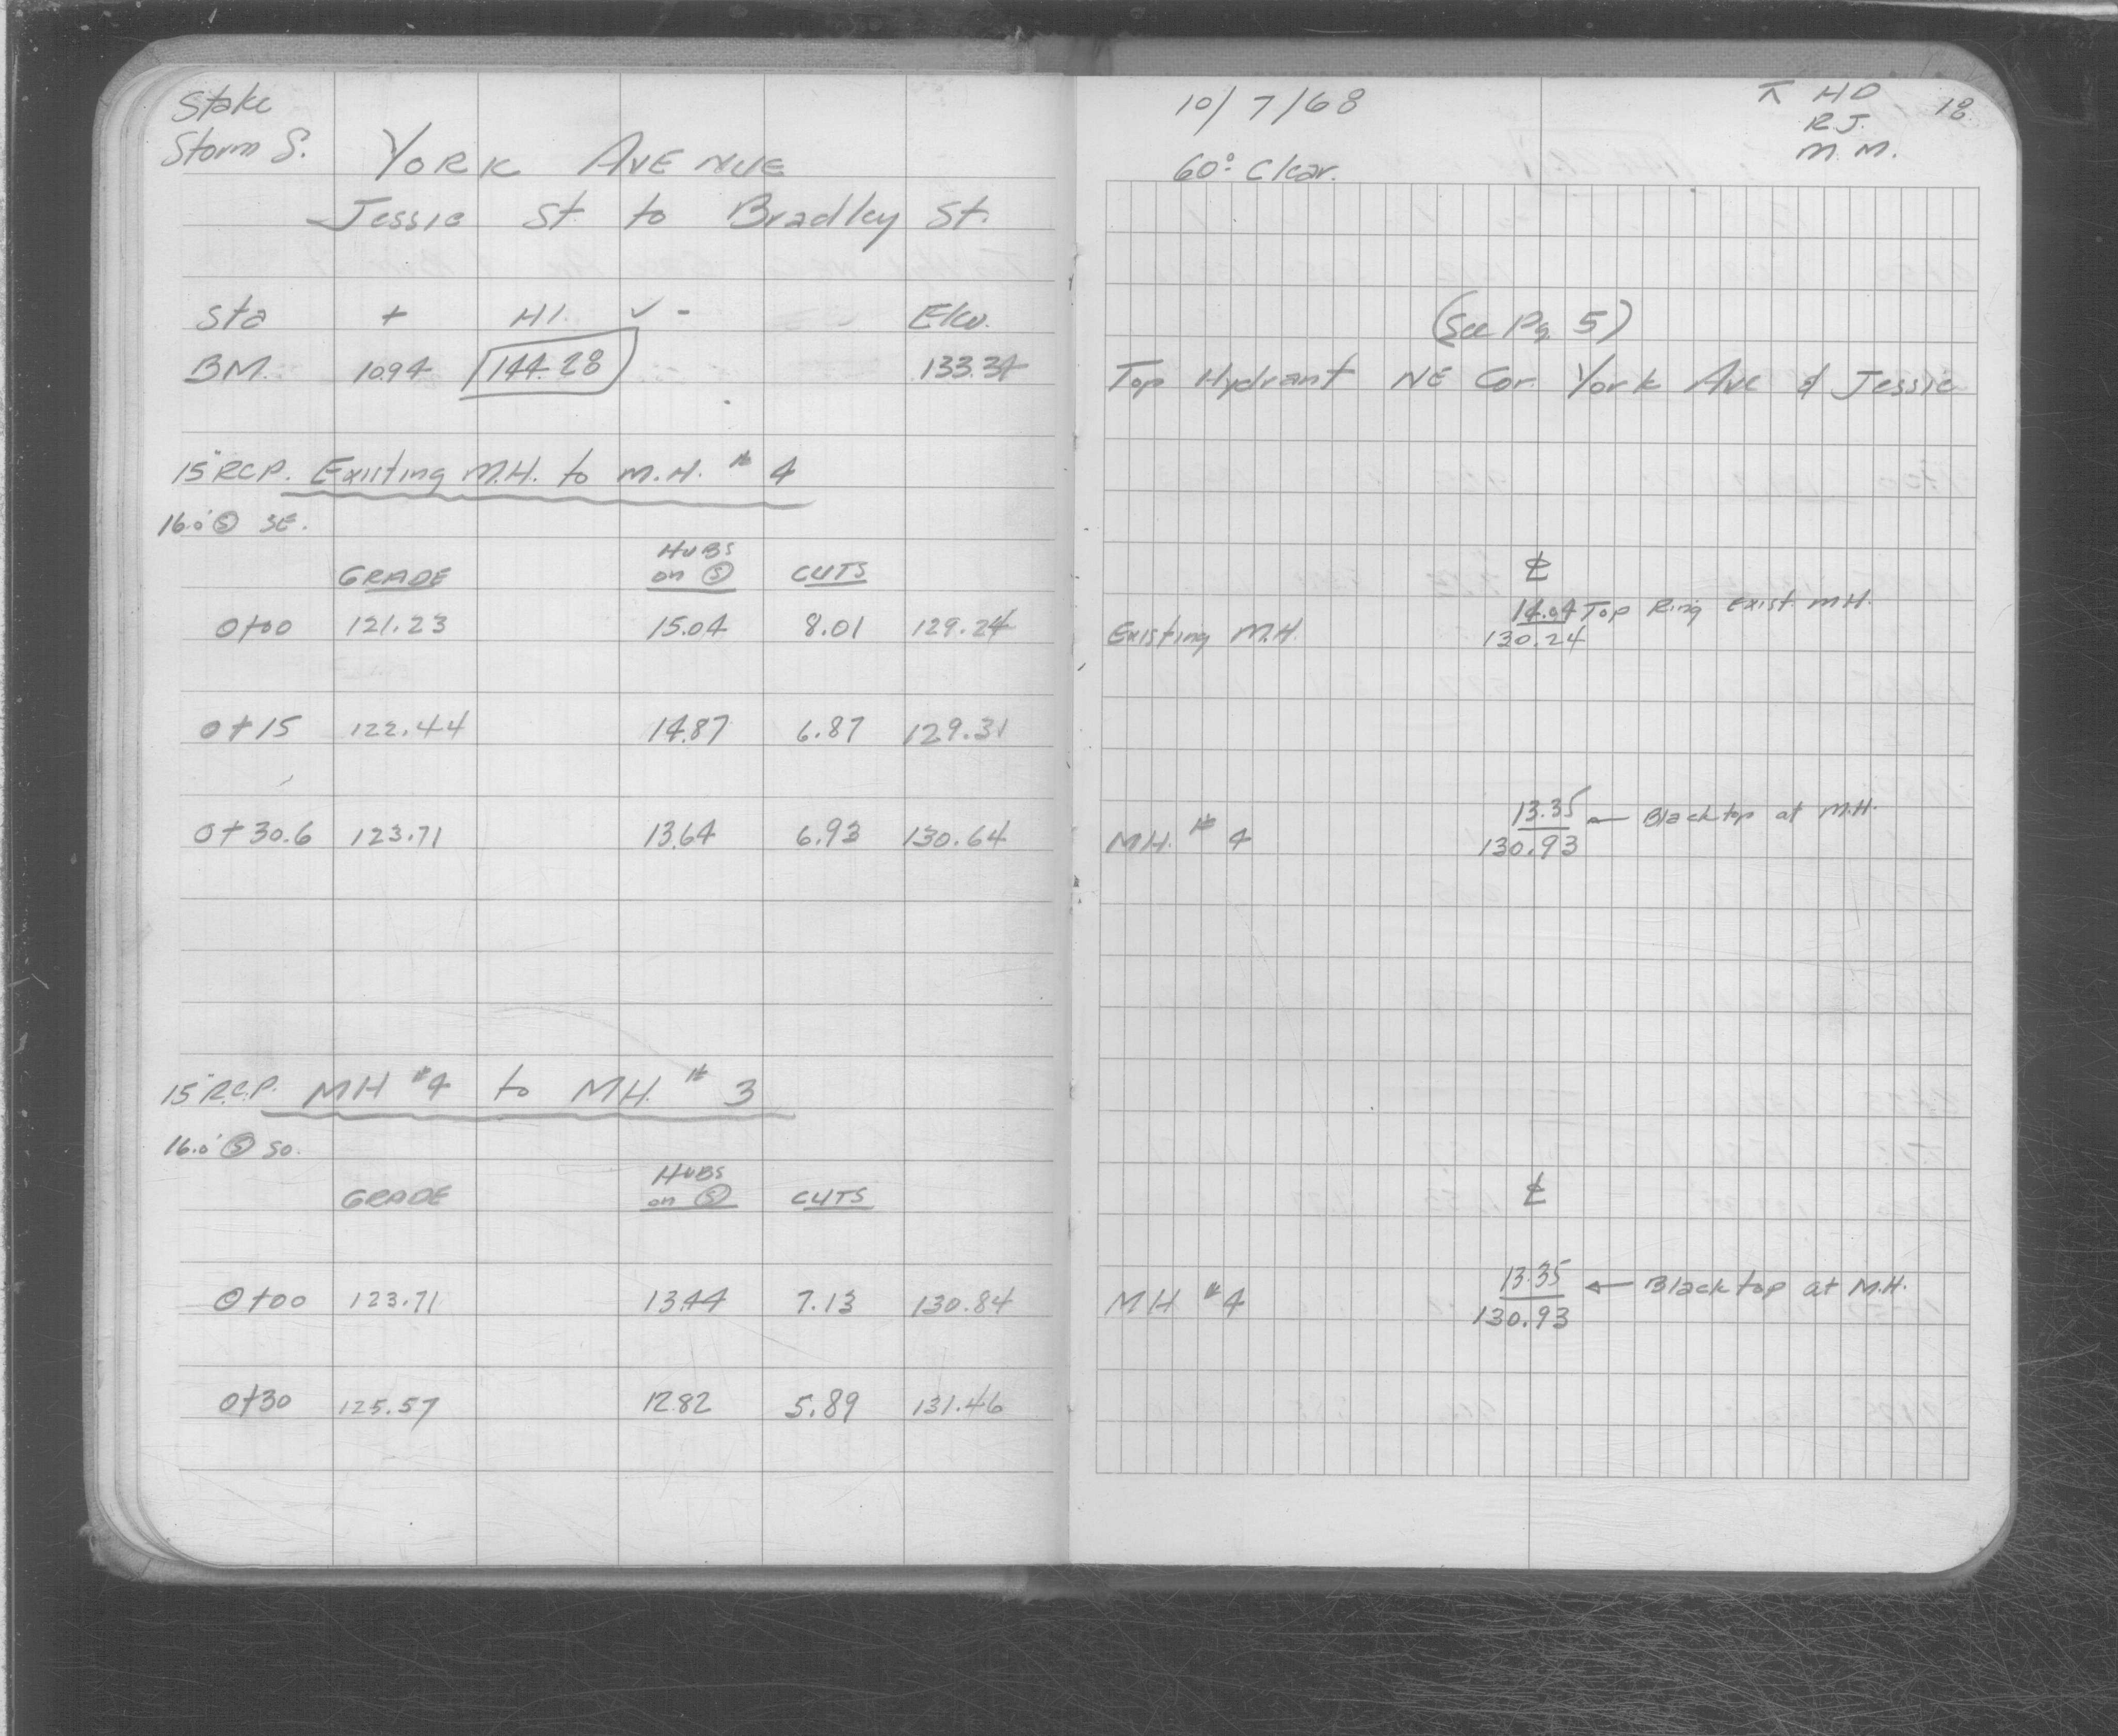 Stake
Storm S.
YORK AVENUE
Jessie St. to Bradley St.
Sta + HI. ✓ - Elev.
BM. 10.94 144.28 133.34
15" RCP. Existing M.H. to M.H. # 4
16.0' Ⓢ SE.
GRADE HUBS on Ⓢ CUTS
0+00 121.23 15.04 8.01 129.24
0+15 122.44 14.87 6.87 129.31
0+30.6 123.71 13.64 6.93 130.64
15" R.C.P. MH #4 to MH. # 3
16.0' Ⓢ So.
GRADE HUBS on Ⓢ CUTS
0+00 123.71 13.44 7.13 130.84
0+30 125.57 12.82 5.89 131.46
10/7/68
60° Clear.
⊼ HD
R.J.
M.M.
18
(See Pg. 5)
Top Hydrant NE Cor. York Ave & Jessie
℄
14.04 Top Ring Exist. M.H.
Existing M.H. 130.24
13.35 ← Blacktop at M.H.
MH. # 4 130.93
℄
13.35 ← Blacktop at M.H.
MH #4 130.93